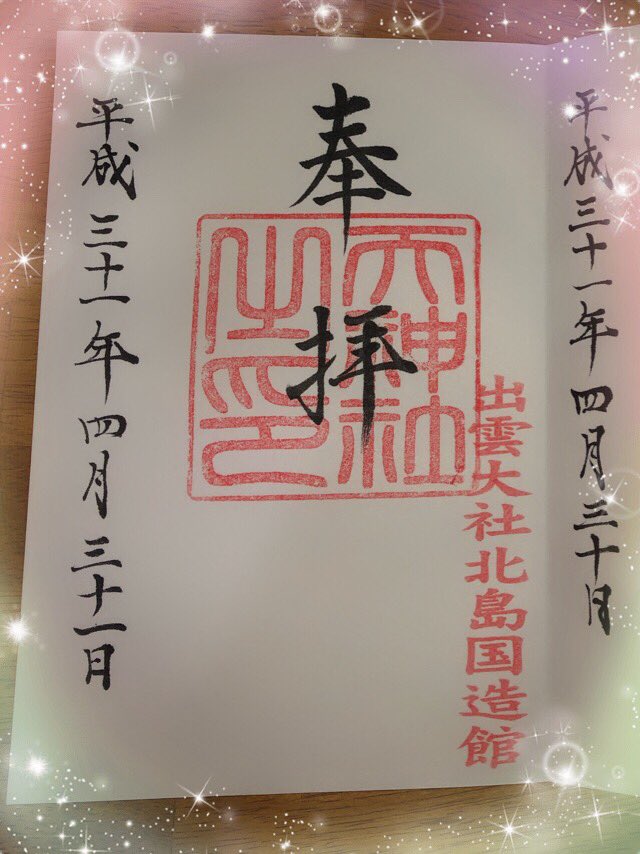 平成三十一年四月三十日
出雲大社北島国造館
奉拝
天神社
之印
平成三十一年四月三十一日